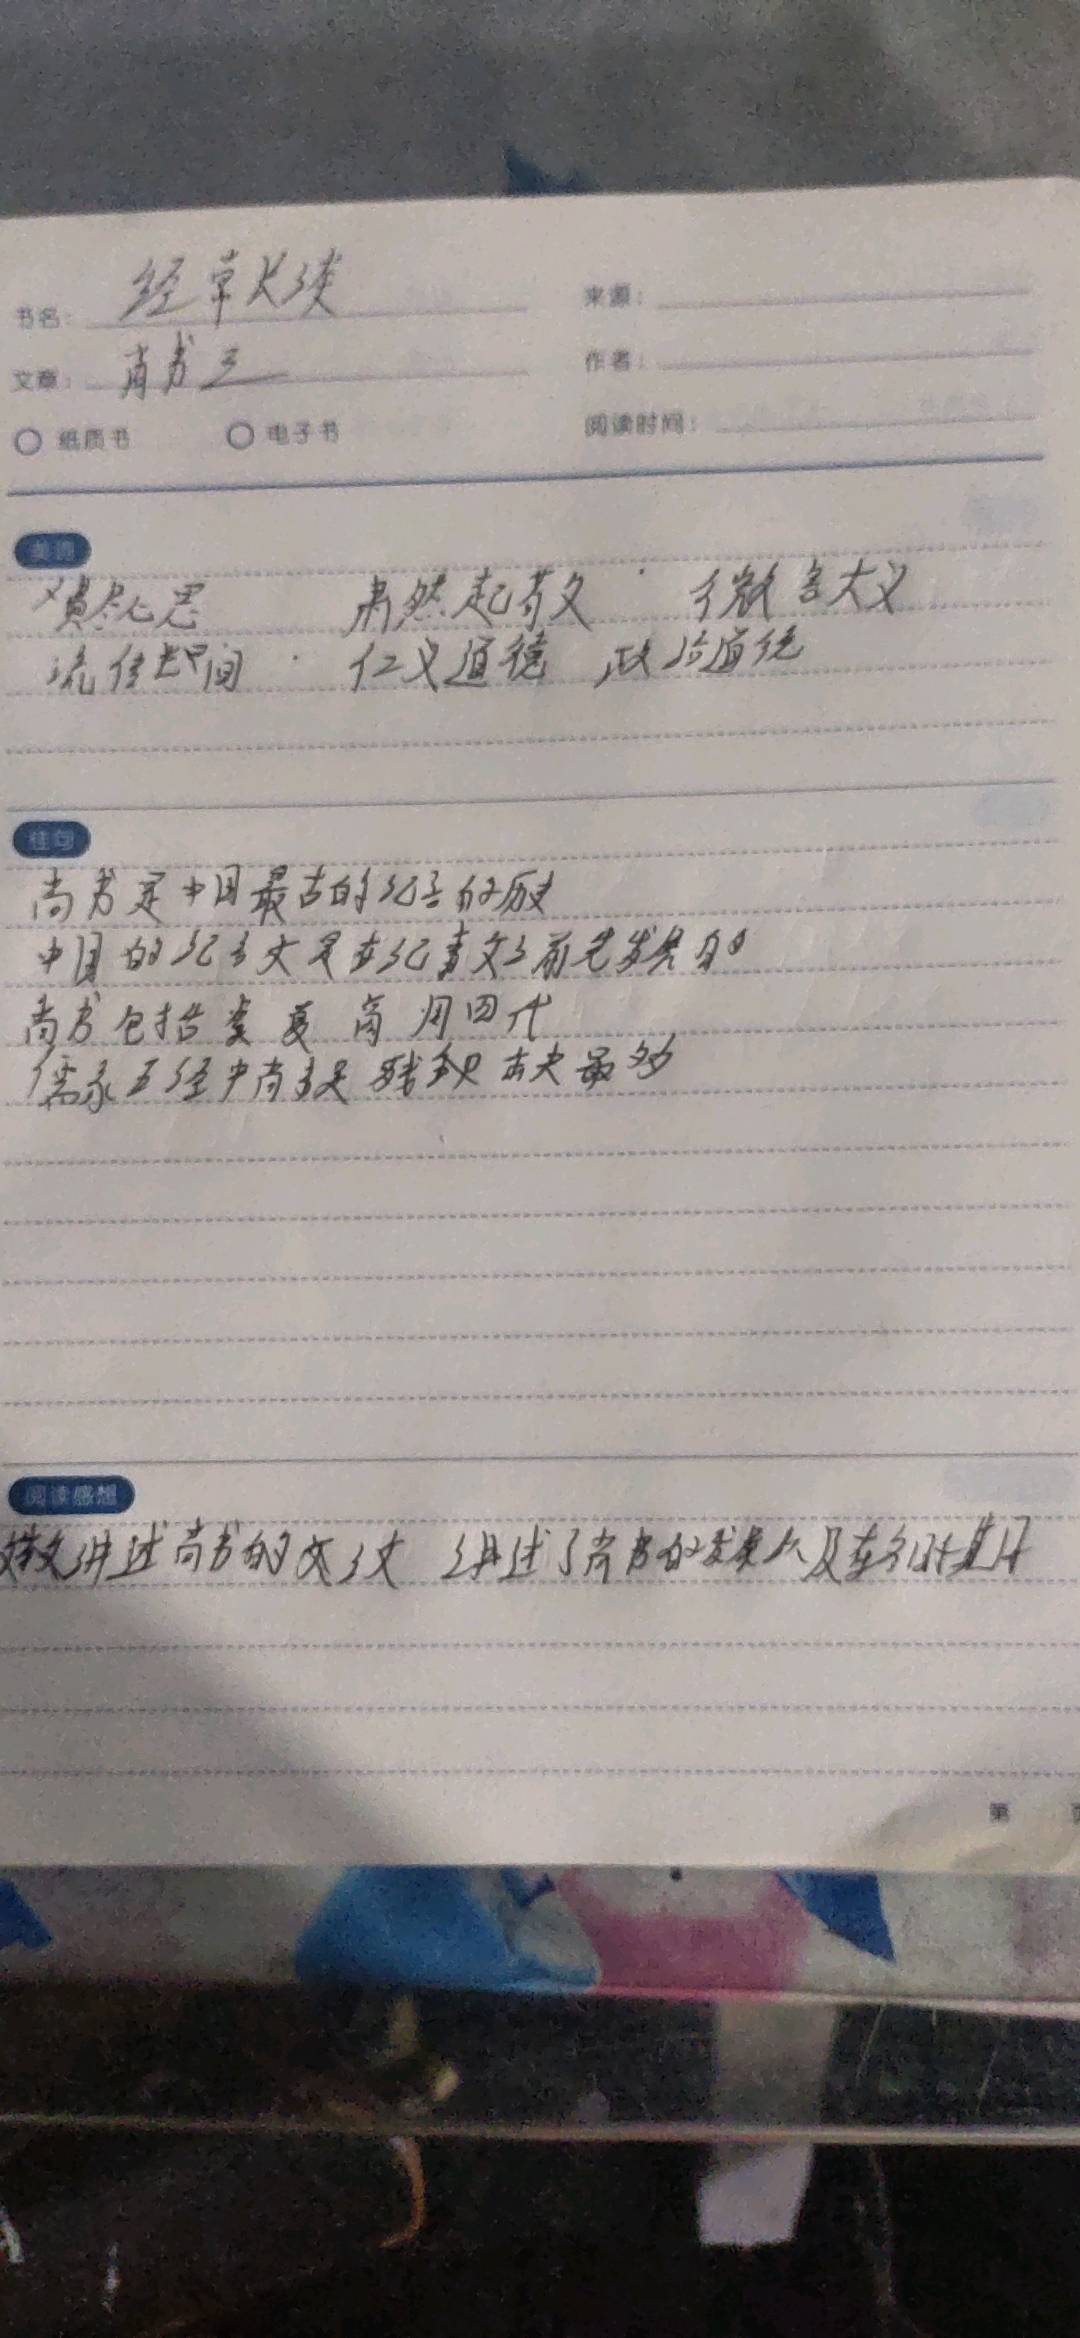 书名：经常长谈
来源：
文章：尚书三
作者：
纸质书 电子书
阅读时间：
美词
费尽心思 肃然起敬 微言大义
流传世间 仁义道德 政治道统
佳句
尚书是中国最古的纪言的历史
中国的纪言文是在纪事文之前先发展的
尚书包括虞夏商周四代
儒家五经中尚书 残缺 最多
阅读感想
讲述尚书的 讲述了尚书的发展以及在
第 页